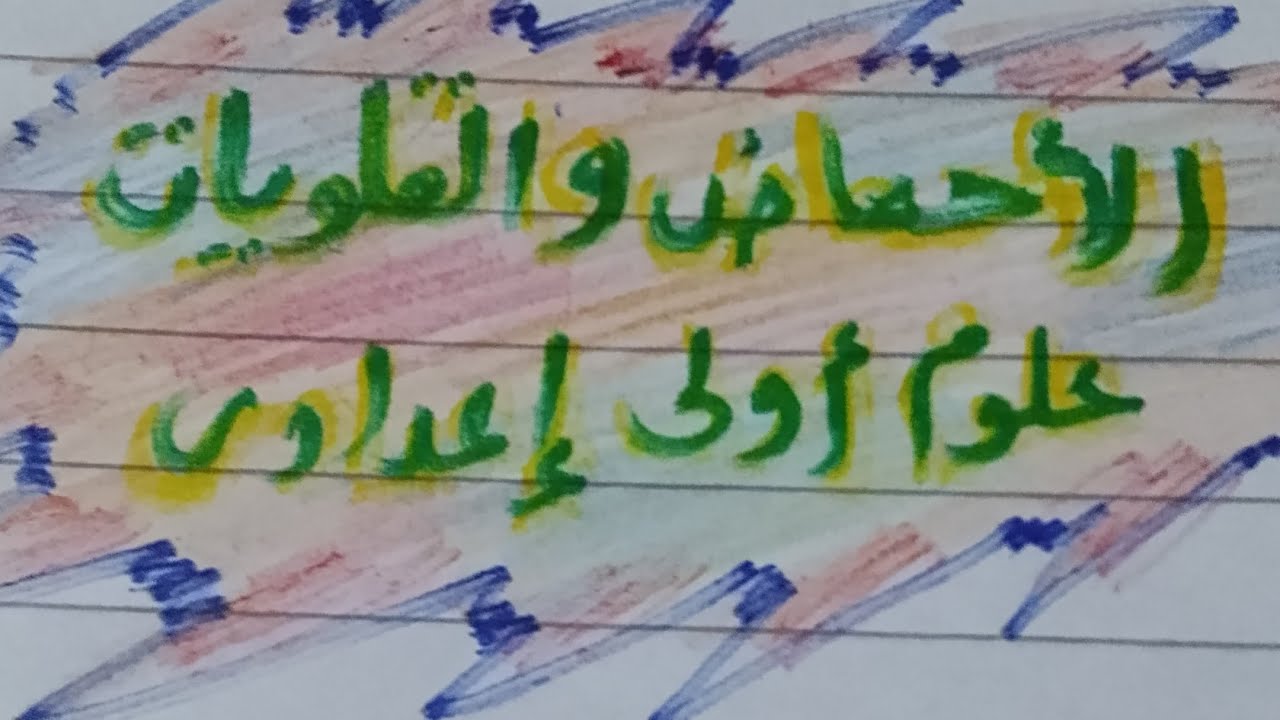 الأحماض والقلويات
علوم أولى إعدادى